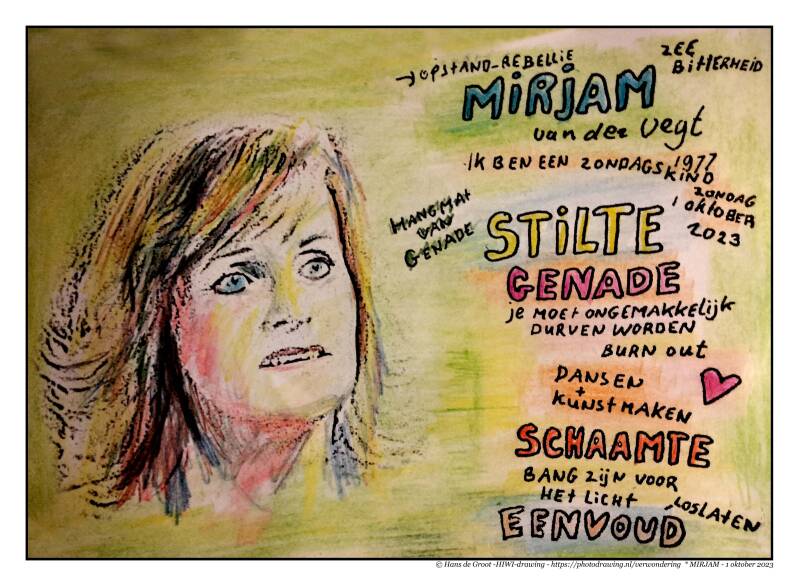 → OPSTAND-REBELLIE
ZEE
BITTERHEID
MIRJAM
van der Vegt
IK BEN EEN ZONDAGSKIND
1977
ZONDAG
1 OKTOBER
2023
HANGMAT
VAN
GENADE
STILTE
GENADE
je MOET ONGEMAKKELIJK
DURVEN WORDEN
BURN OUT
DANSEN
+
KUNST MAKEN
SCHAAMTE
BANG ZIJN VOOR
HET LICHT
LOSLATEN
EENVOUD
© Hans de Groot -HIWI-drawing - https://photodrawing.nl/verwondering * MIRJAM - 1 oktober 2023